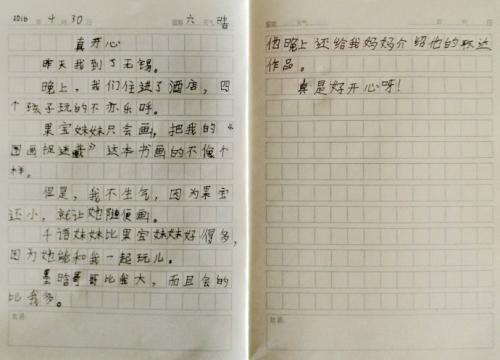 2016年4月30日 星期六 天气晴
真开心
昨天我到了无锡。
晚上，我们住进了酒店，四
个孩子玩的不亦乐呼。
果宝妹妹只会画，把我的《
图画捉迷藏》这本书画的不像个
样。
但是，我不生气，因为果宝
还小，就让她随便画。
千语妹妹比果宝妹妹好得多，
因为她能和我一起玩儿。
墨晗哥哥比我大，而且会的
比我多。
批语:
星期 天气 年 月 日
他晚上还给我妈妈介绍他的
作品。
真是好开心呀！
批语: